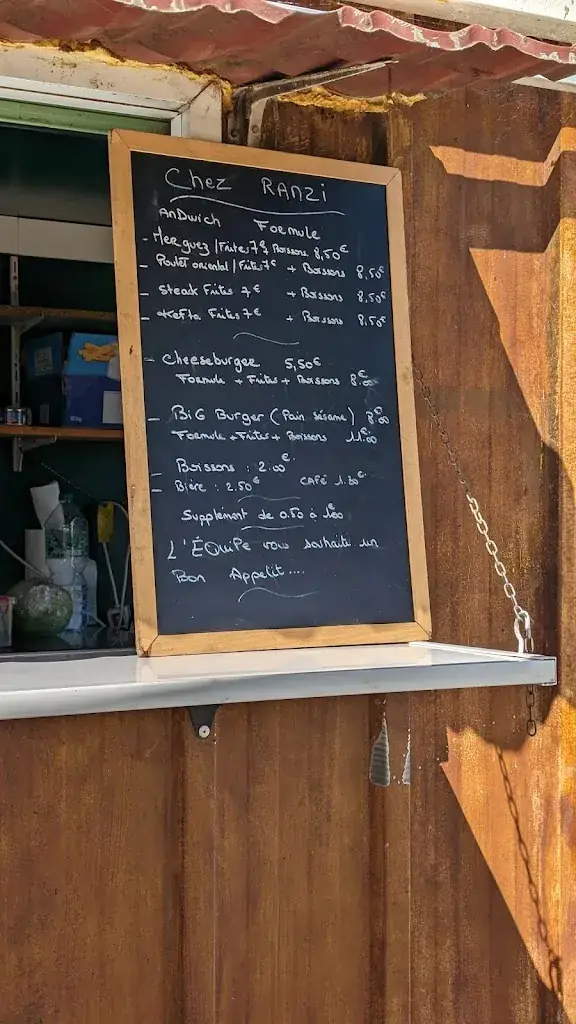 Chez RANZI
ANDWich Formule
- Merguez / Frites 7€ + Boissons 8,50€
- Poulet oriental / Frites 7€ + Boissons 8,50€
- Steak Frites 7€ + Boissons 8,50€
- Kefta Frites 7€ + Boissons 8,50€
- Cheeseburger 5,50€
Formule + Frites + Boissons 8.00€
- BiG Burger (Pain sésame) 8.00€
Formule + Frites + Boissons 11.00€
- Boissons : 2.00€
- Bière : 2.50€ CAFÉ 1.30€
Supplément de 0.50 à 1.00
L'ÉQuiPe vous souhaite un
Bon Appetit....